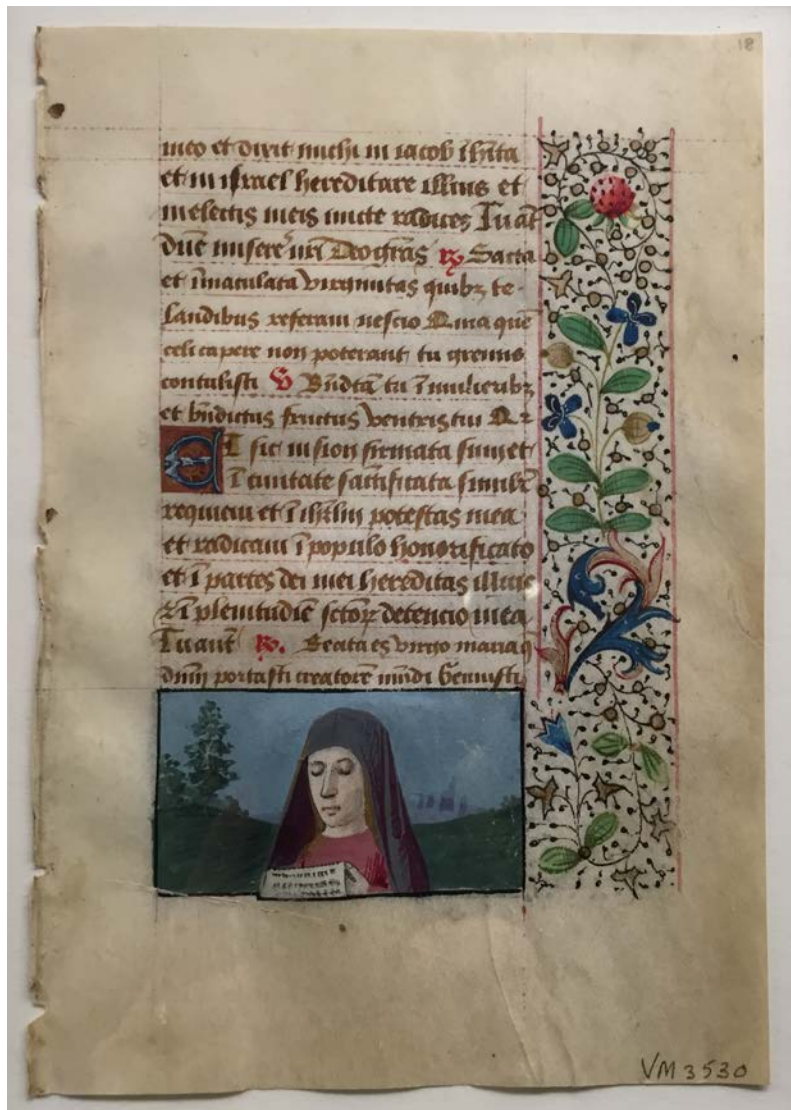 18
meo et dixit michi in iacob ihita
et in israel hereditare illius et
in electis meis mitte radices Tu aūt
dn̄e misere’ nr̄i Deo grās ꝶ Sacta
et īmaculata virginitas quibꝫ te
laudibus referam nescio Quia quē
celi capere non poterant tu gremio
contulisti ꝟ Bn̄dcā tu ī mulieribꝫ
et bn̄dictus fructus ventris tui Qꝛ
Et sic in sion firmata sum et
ī civitate sāctificata simili’
requievi et ī ihrlm potestas mea
et radicavi ī populo honorificato
et ī partes dei mei hereditas illius
⁊ ī plenitudīe sctōꝝ detencio mea
Tu aūt ꝶ. Beata es virgo maria q̄
dn̄m portasti creatorē mūdi Genuisti
VM 3530